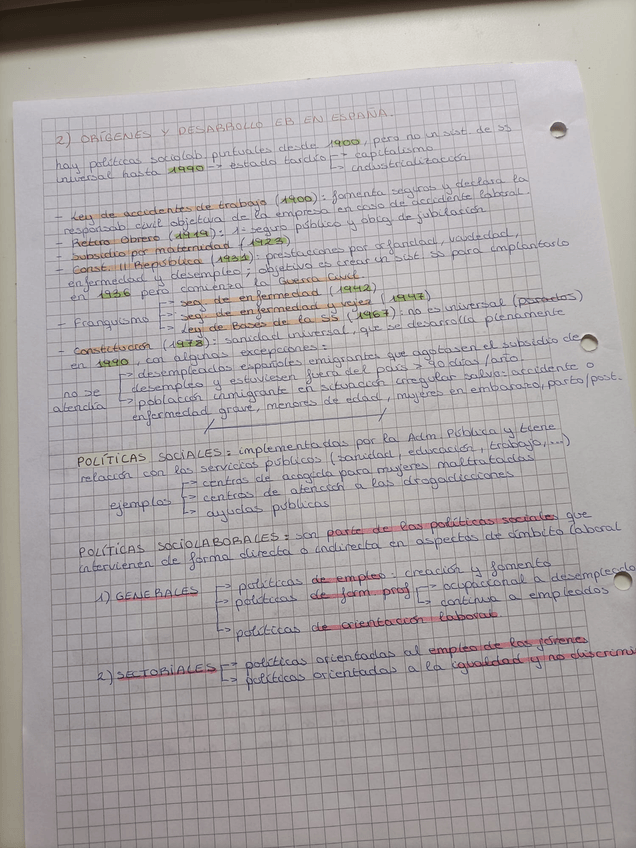 2) ORÍGENES Y DESARROLLO EB EN ESPAÑA.
hay políticas sociolab. puntuales desde 1900, pero no un sist. de ss
universal hasta 1990 → estado tardío → capitalismo
→ industrialización
- Ley de accidentes de trabajo (1900): fomenta seguros y declara la
responsab civil objetiva de la empresa en caso de accidente laboral.
- Retiro Obrero (1919): 1º seguro público y oblig de jubilación.
- Subsidio por maternidad (1923)
- Const. II República (1931): prestaciones por orfandad, viudedad,
enfermedad y desempleo; objetivo es crear un sist. ss para implantarlo
en 1936 pero comienza la Guerra Civil
- Franquismo → seg de enfermedad (1942)
→ seg de enfermedad y vejez (1947)
→ Ley de Bases de la SS (1967): no es universal (parados)
- Constitución (1978): sanidad universal, que se desarrolla plenamente
en 1990, con algunas excepciones:
no se atendía → desempleados españoles emigrantes que agotasen el subsidio de
desempleo y estuviesen fuera del país > 90 días/año
→ población inmigrante en situación irregular salvo: accidente o
enfermedad grave, menores de edad, mujeres en embarazo, parto/post.
POLÍTICAS SOCIALES = implementadas por la Adm. Pública y tiene
relación con los servicios públicos (sanidad, educación, trabajo, ...)
ejemplos → centros de acogida para mujeres maltratadas
→ centros de atención a las drogadicciones
→ ayudas públicas
POLÍTICAS SOCIOLABORALES = son parte de las políticas sociales que
intervienen de forma directa o indirecta en aspectos de ámbito laboral
1) GENERALES → políticas de empleo: creación y fomento
→ políticas de form prof → ocupacional a desempleado
→ continua a empleados
→ políticas de orientación laboral
2) SECTORIALES → políticas orientadas al empleo de los jóvenes
→ políticas orientadas a la igualdad y no discrimi